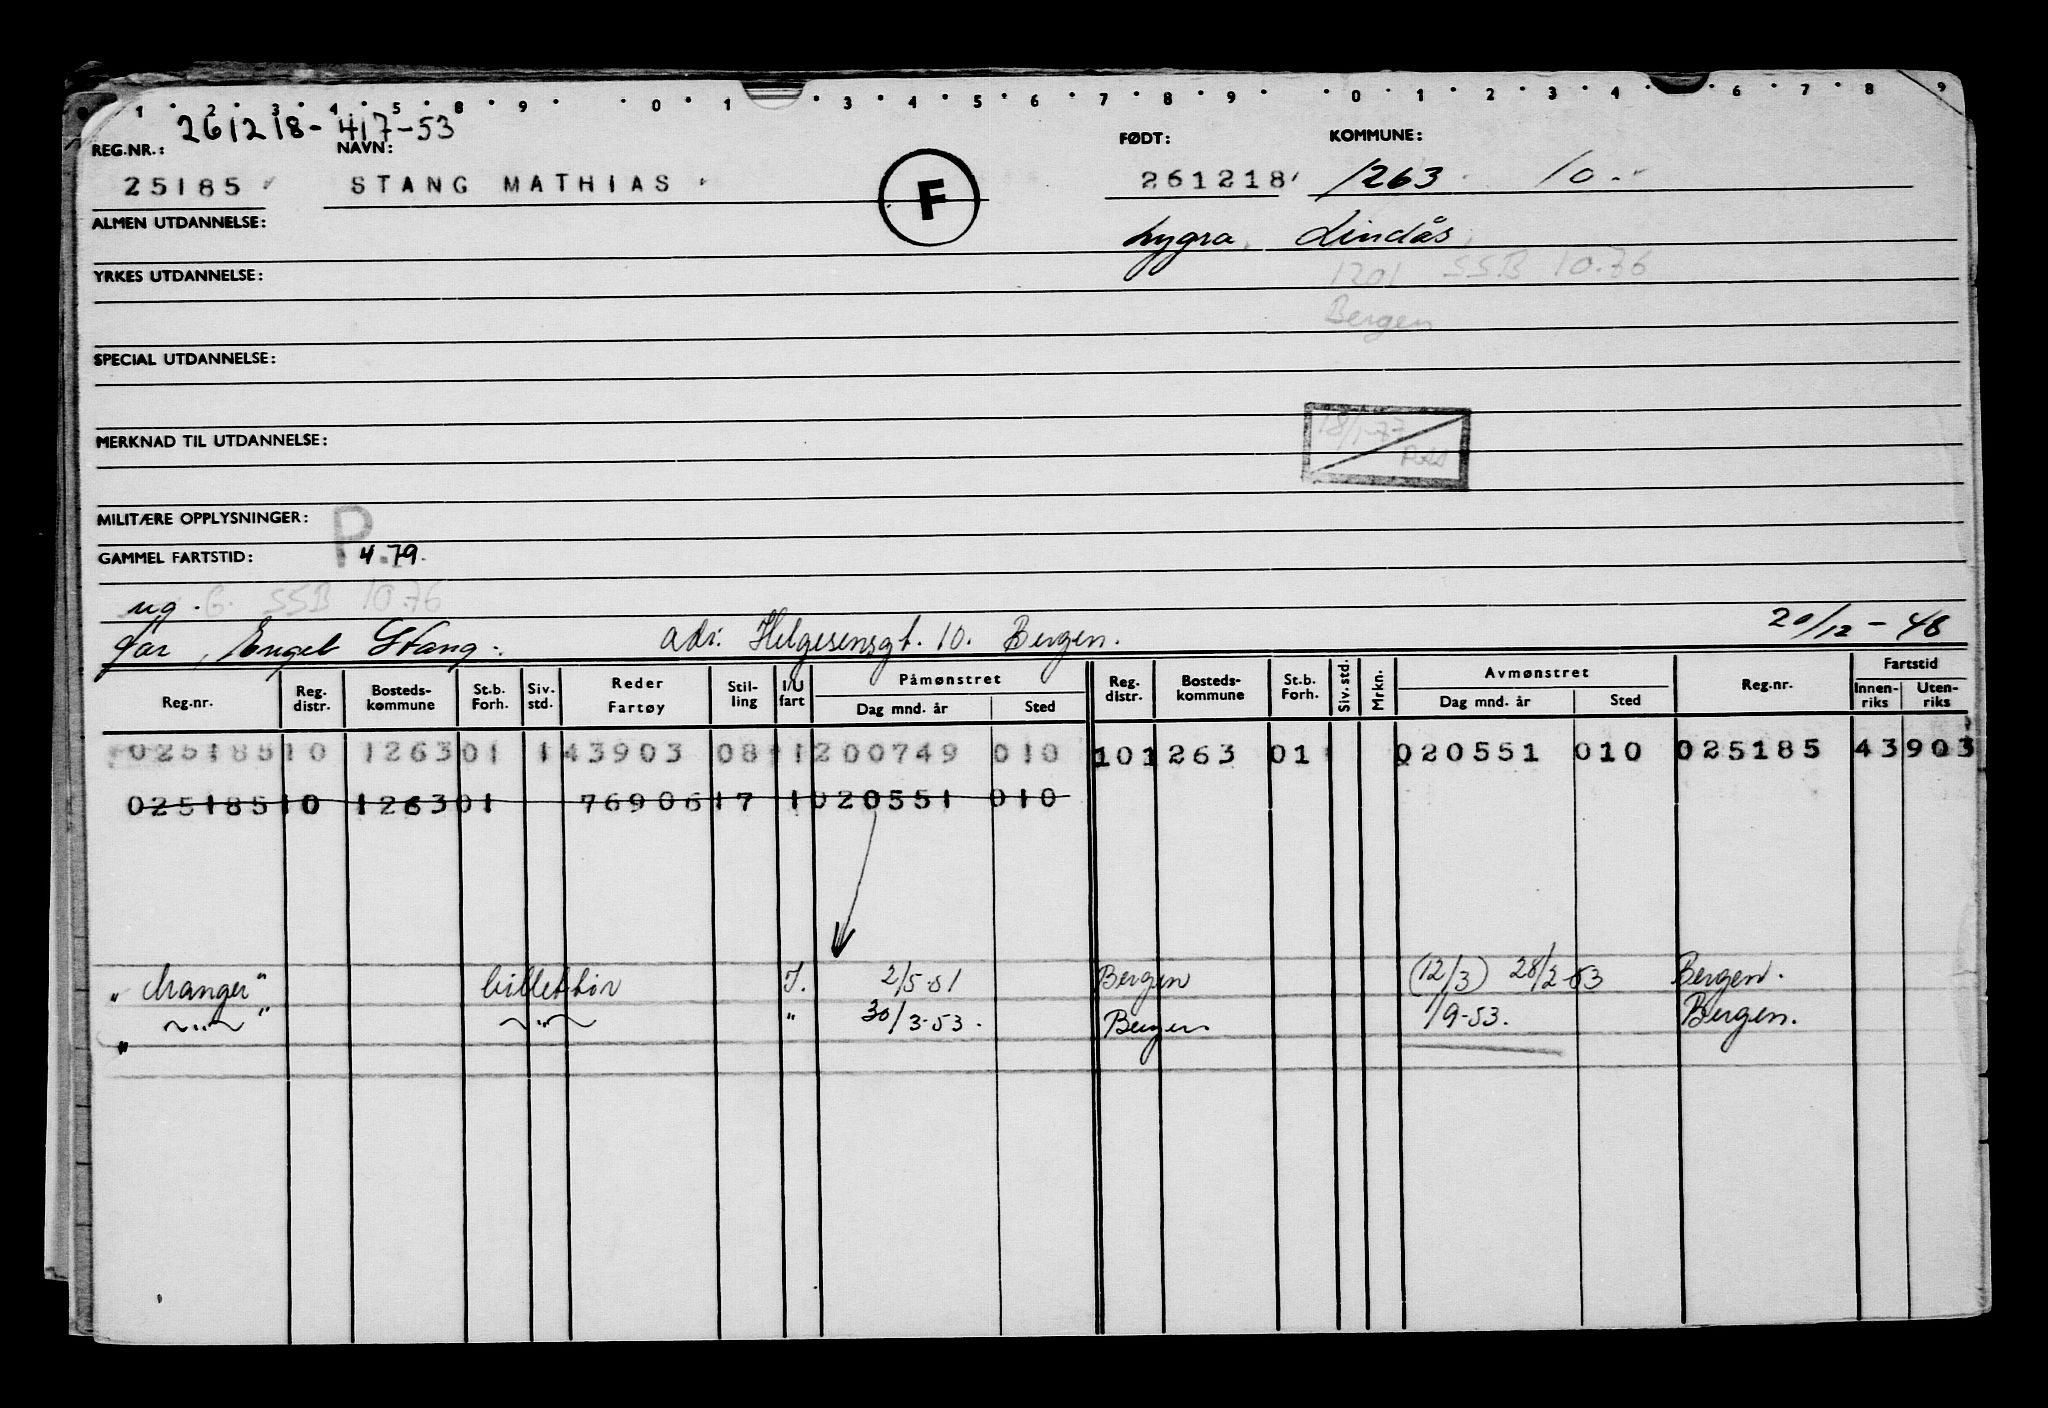 1 2 3 4 5 8 9 0 1 3 4 5 6 7 8 9 0 1 2 3 4 6 7 8 9
261218-417-53
REG.NR.: NAVN: FØDT: KOMMUNE:
25185 STANG MATHIAS F 261218 1263 10.
ALMEN UTDANNELSE: Lygra Lindås
YRKES UTDANNELSE: 1201 SSB 10.76
Bergen
SPECIAL UTDANNELSE:
18/1-77
MERKNAD TIL UTDANNELSE:
MILITÆRE OPPLYSNINGER: P.
GAMMEL FARTSTID: 4.79.
ug. G. SSB 10.76
far, Engel Stang. adr. Helgesensgt. 10. Bergen. 20/12-48
Reg.nr. Reg. distr. Bosteds-kommune St.b. Forh. Siv. std. Reder Fartøy Stil-ling I/U fart Påmønstret Dag mnd. år Sted Reg. distr. Bosteds-kommune St.b. Forh. Siv. std. Mrkn. Avmønstret Dag mnd. år Sted Reg.nr. Fartstid Innen-riks Uten-riks
025185 10 1263 01 1 43903 081 1 200749 010 10 1263 01 020551 010 025185 43903
025185 10 1263 01 76906 17 1 020551 010
"Manger" billettør I. 2/5-51 Bergen (12/3) 28/2-53 Bergen.
" ~"~ " ~"~ " 30/3-53. Bergen 1/9-53. Bergen.
"